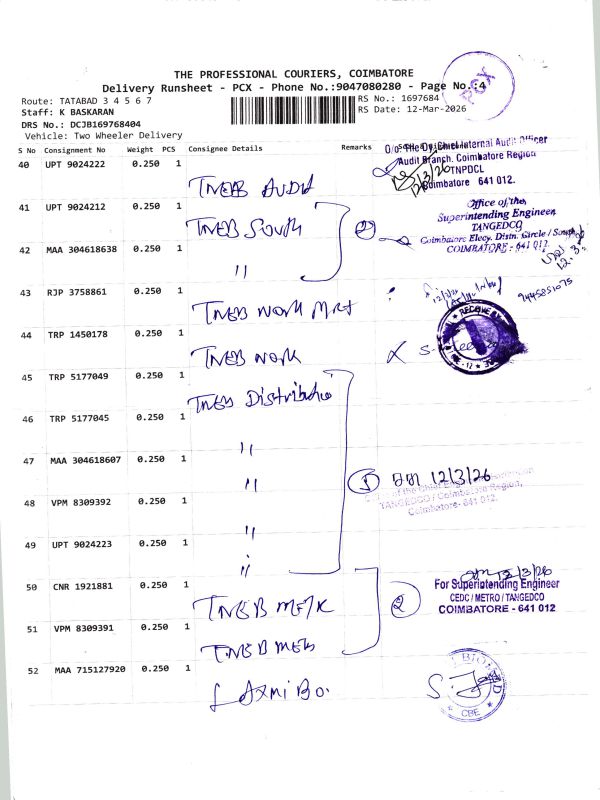 THE PROFESSIONAL COURIERS, COIMBATORE
Delivery Runsheet - PCX - Phone No.:9047080280 - Page No.:4
PCX
Route: TATABAD 3 4 5 6 7
RS No.: 1697684
Staff: K BASKARAN
RS Date: 12-Mar-2026
DRS No.: DCJB169768404
Vehicle: Two Wheeler Delivery
S No Consignment No Weight PCS Consignee Details Remarks
40 UPT 9024222 0.250 1 TNEB AUDit
Audit Branch. Coimbatore Region
TNPDCL
Coimbatore 641 012.
12/3/26
41 UPT 9024212 0.250 1 TNEB South
2
Office of the,
Superintending Engineer,
TANGEDCO
Coimbatore Elecy. Distn. Circle / South
COIMBATORE - 641 012.
12.3.26
42 MAA 304618638 0.250 1 "
9445851075
43 RJP 3758861 0.250 1 TNEB North MRT
44 TRP 1450178 0.250 1 TNEB North
45 TRP 5177049 0.250 1 TNEB Distribution
46 TRP 5177045 0.250 1 "
47 MAA 304618607 0.250 1 "
12/3/26
TANGEDCO / Coimbatore Region,
Coimbatore- 641 012.
48 VPM 8309392 0.250 1 "
49 UPT 9024223 0.250 1 "
50 CNR 1921881 0.250 1 TNEB
2
12/3/26
For Superintending Engineer
CEDC / METRO / TANGEDCO
COIMBATORE - 641 012
51 VPM 8309391 0.250 1 TNEB
52 MAA 715127920 0.250 1 Laxmi Bo.
CBE